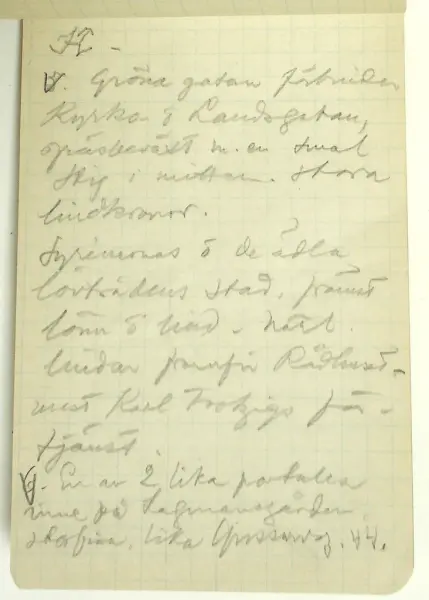 V. Gröna gatan förbinder
Kyrko o Landsgatan,
gräsbeväxt m. en smal
stig i mitten. Stora
lindkronor.
Syrenernas o de ädla
lövträdens stad, främst
lönn o lind.
lindar framför Rådhuset
mest Karl Trotzigs för-
tjänst.
V. En av 2 lika portaler
inne på Lagmansgården
lika 44.